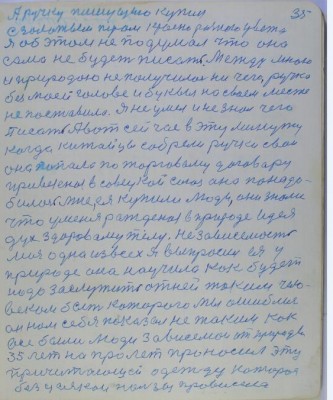 35
А ручку пишущую купим
с золотым пером красного цвета
я об этом не подумал что она
сама не будет писать. Между мною
и природою не получилось ничего, ручка
без моей голове и буквы на своем месте
не поставила. Я не умел и не знал чего
писать. А вот сейчас в эту минуту
когда китайцы собрели ручку свою
она попала по торговому договару
привезена в советской союз она понадо-
билась мне, её купили люди, они знали
что у меня рождена в природе идея
дух здоровому телу. Независимость
моя одна из всех я выпросил её у
природе она научила как будет
надо заслужить от ней таким чело-
веком быть которого мы ошиблись
он нам себя показал не таким как
все были люди зависемои от природы
35 лет на про лет проносил эту
причитающую одежду которая
без всякой пользы провисела